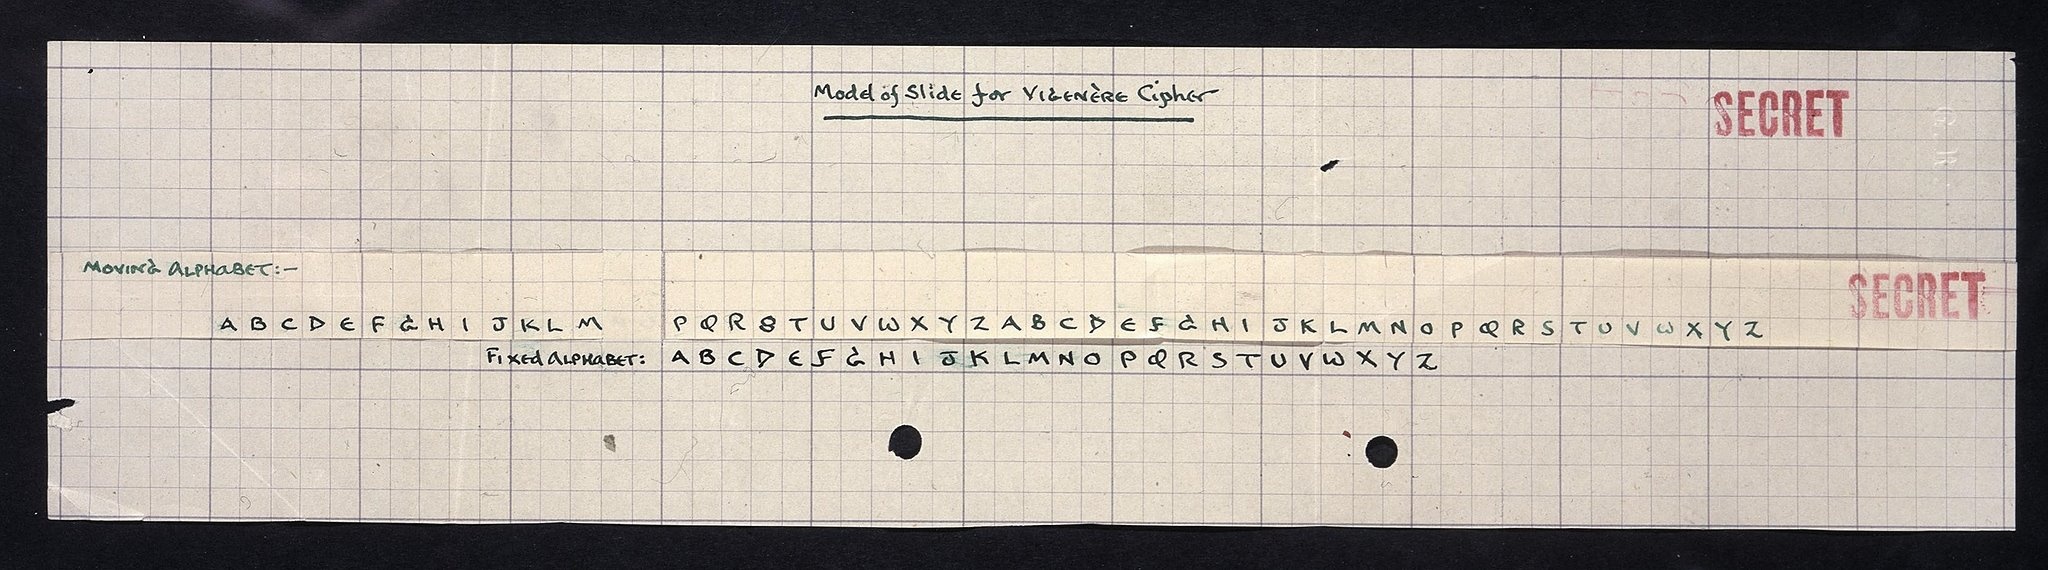 Model of Slide for VIGENÈRE Cipher
SECRET
MOVING ALPHABET:-
SECRET
A B C D E F G H I J K L M P Q R S T U V W X Y Z A B C D E F G H I J K L M N O P Q R S T U V W X Y Z
FIXED ALPHABET: A B C D E F G H I J K L M N O P Q R S T U V W X Y Z